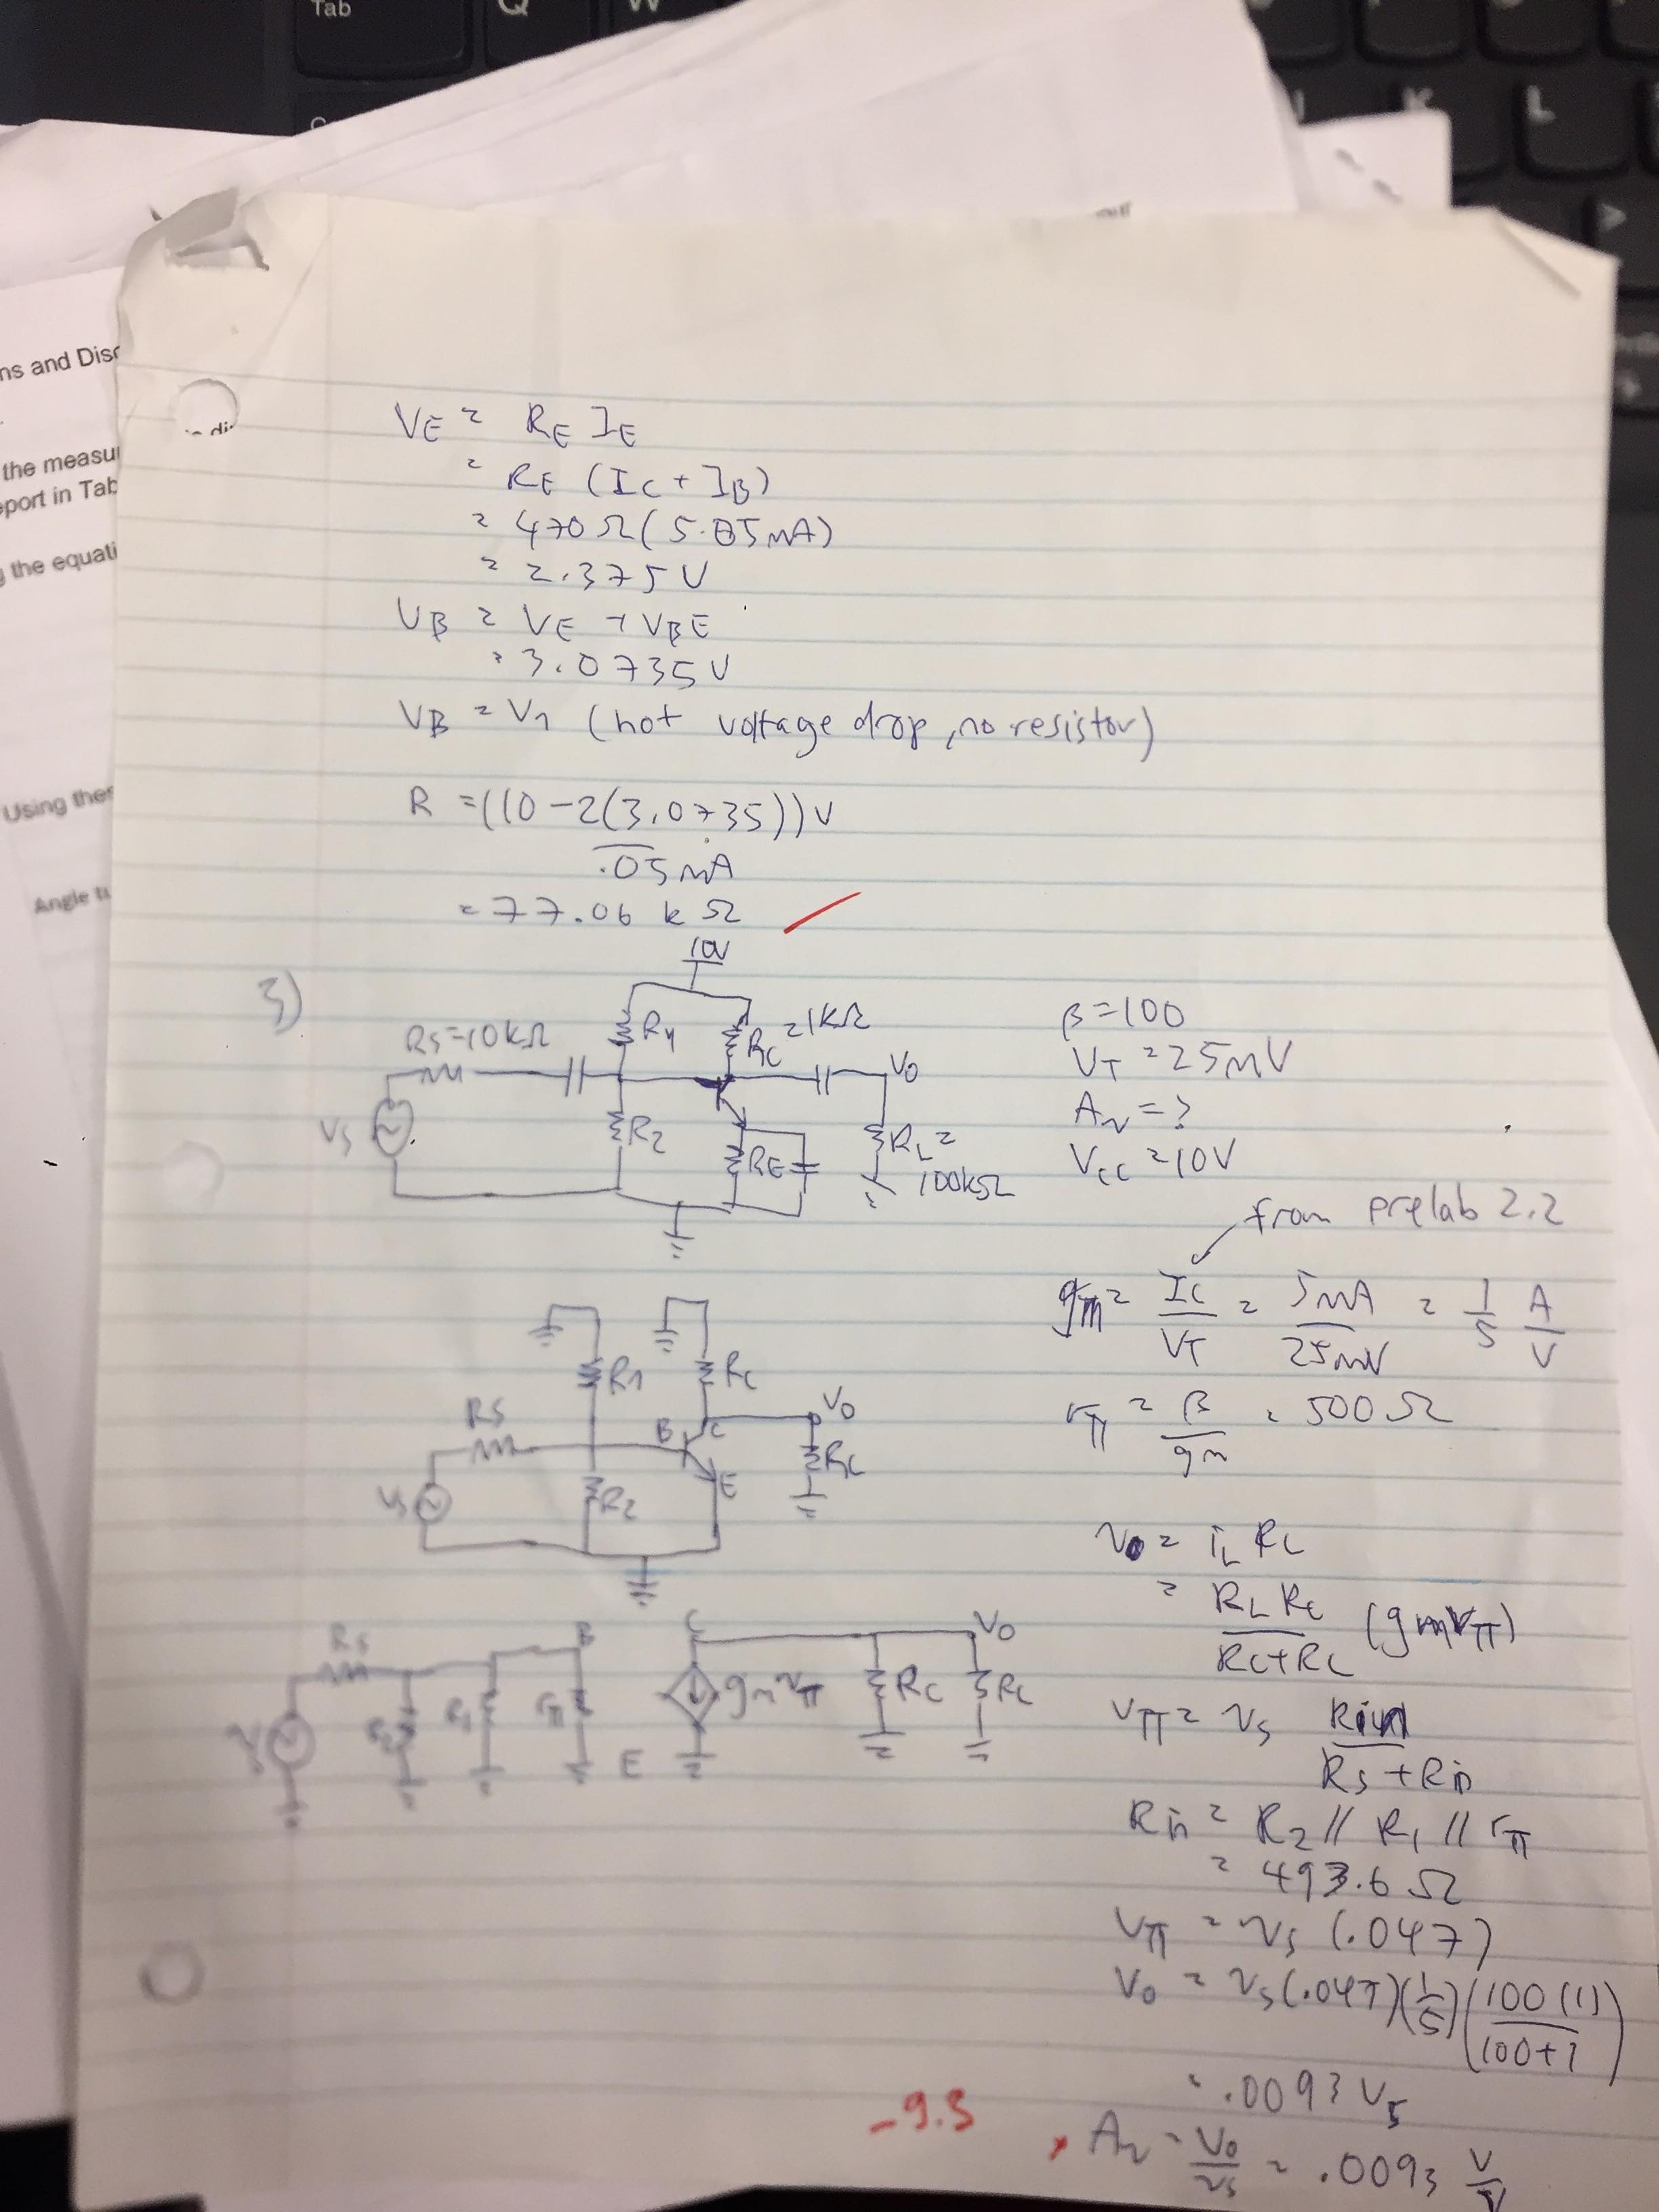 Tab
Q
W
K
L
>
ns and Disc
the measu
eport in Tab
g the equati
Using thes
Angle
VE = RE IE
= RE (IC + IB)
= 470 Ω (5.05mA)
= 2.375 V
VB = VE + VBE
= 3.0735 V
VB = V1 (not voltage drop, no resistor)
R = ((10 - 2(3.0735)) V
.05 mA
= 77.06 kΩ
10V
3)
RS=10kΩ
R1
RC =1kΩ
VO
VS
R2
RE
RL =
100kΩ
β=100
VT = 25mV
Av = ?
VCC = 10V
from prelab 2.2
gm = IC/VT = 5mA/25mV = 1/5 A/V
rπ = β/gm = 500 Ω
R1
RC
VO
RS
B
C
RL
E
VS
R2
vo = iL RL
= RL RC/RC+RL (gm vπ)
RS
B
C
VO
VS
R2
R1
rπ
gm vπ
RC
RL
E
vπ = vs Rin/RS + Rin
Rin = R2 // R1 // rπ
= 493.6 Ω
vπ = vs (.047)
Vo = vs (.047)(1/5)(100 (1)/100+1)
= .0093 VS
-9.3
Av = Vo/vs = .0093 V/V